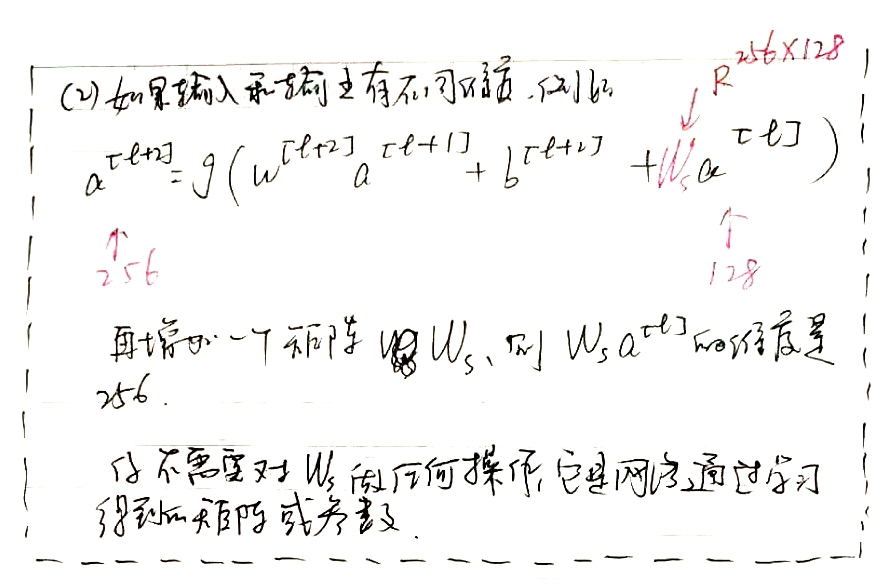 (2) 如果输入和输出有不同维度,例如
R^{256×128}
a^{[l+2]} = g(w^{[l+2]} a^{[l+1]} + b^{[l+2]} + W_s a^{[l]})
256 128
再增加一个矩阵 W_s、则 W_s a^{[l]} 的维度是
256.
你不需要对 W_s 做任何操作,它是网络通过学习
得到的矩阵或参数.